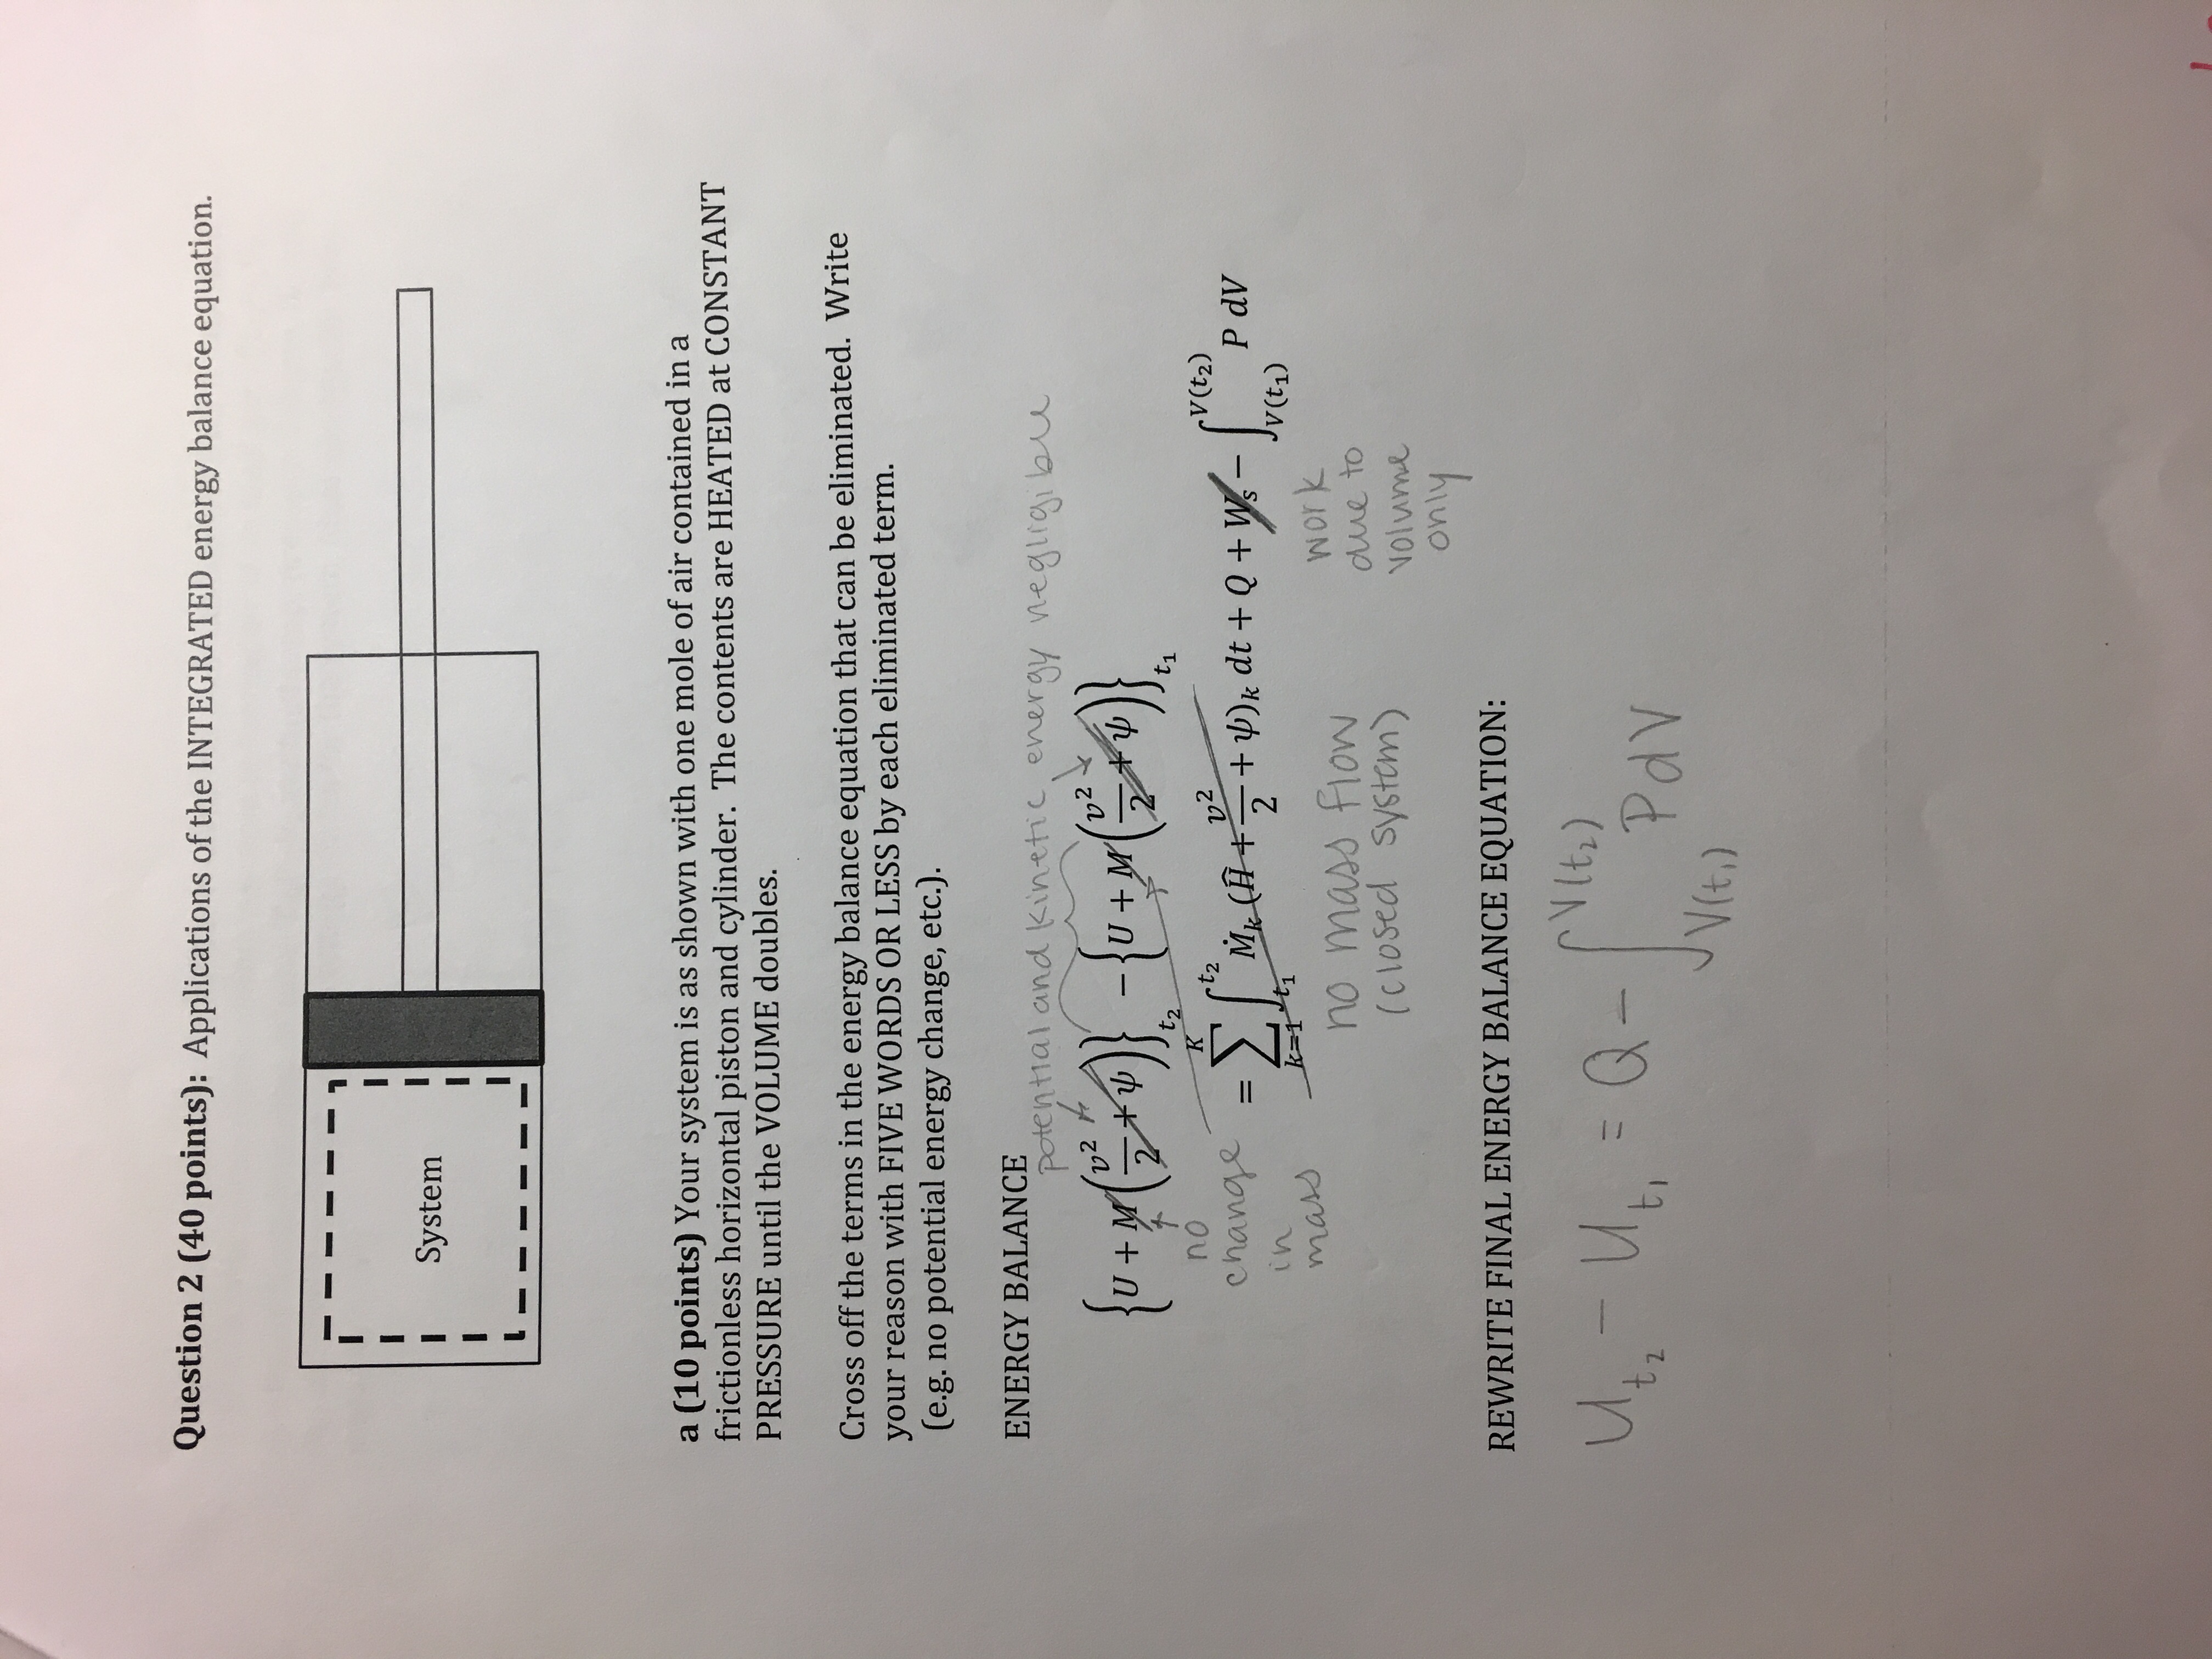 Question 2 (40 points): Applications of the INTEGRATED energy balance equation.
System
a (10 points) Your system is as shown with one mole of air contained in a
frictionless horizontal piston and cylinder. The contents are HEATED at CONSTANT
PRESSURE until the VOLUME doubles.
Cross off the terms in the energy balance equation that can be eliminated. Write
your reason with FIVE WORDS OR LESS by each eliminated term.
(e.g. no potential energy change, etc.).
ENERGY BALANCE
potential and kinetic energy negligible
{U + M(v²/2 + ψ)}t₂ − {U + M(v²/2 + ψ)}t₁
no
change
in
mass
= ∑ₖ₌₁ᴷ ∫t₁^t₂ Ṁₖ (Ĥ + v²/2 + ψ)ₖ dt + Q + Wₛ − ∫V(t₁)^V(t₂) P dV
no mass flow
(closed system)
work
due to
volume
only
REWRITE FINAL ENERGY BALANCE EQUATION:
Ut₂ − Ut₁ = Q − ∫V(t₁)^V(t₂) PdV